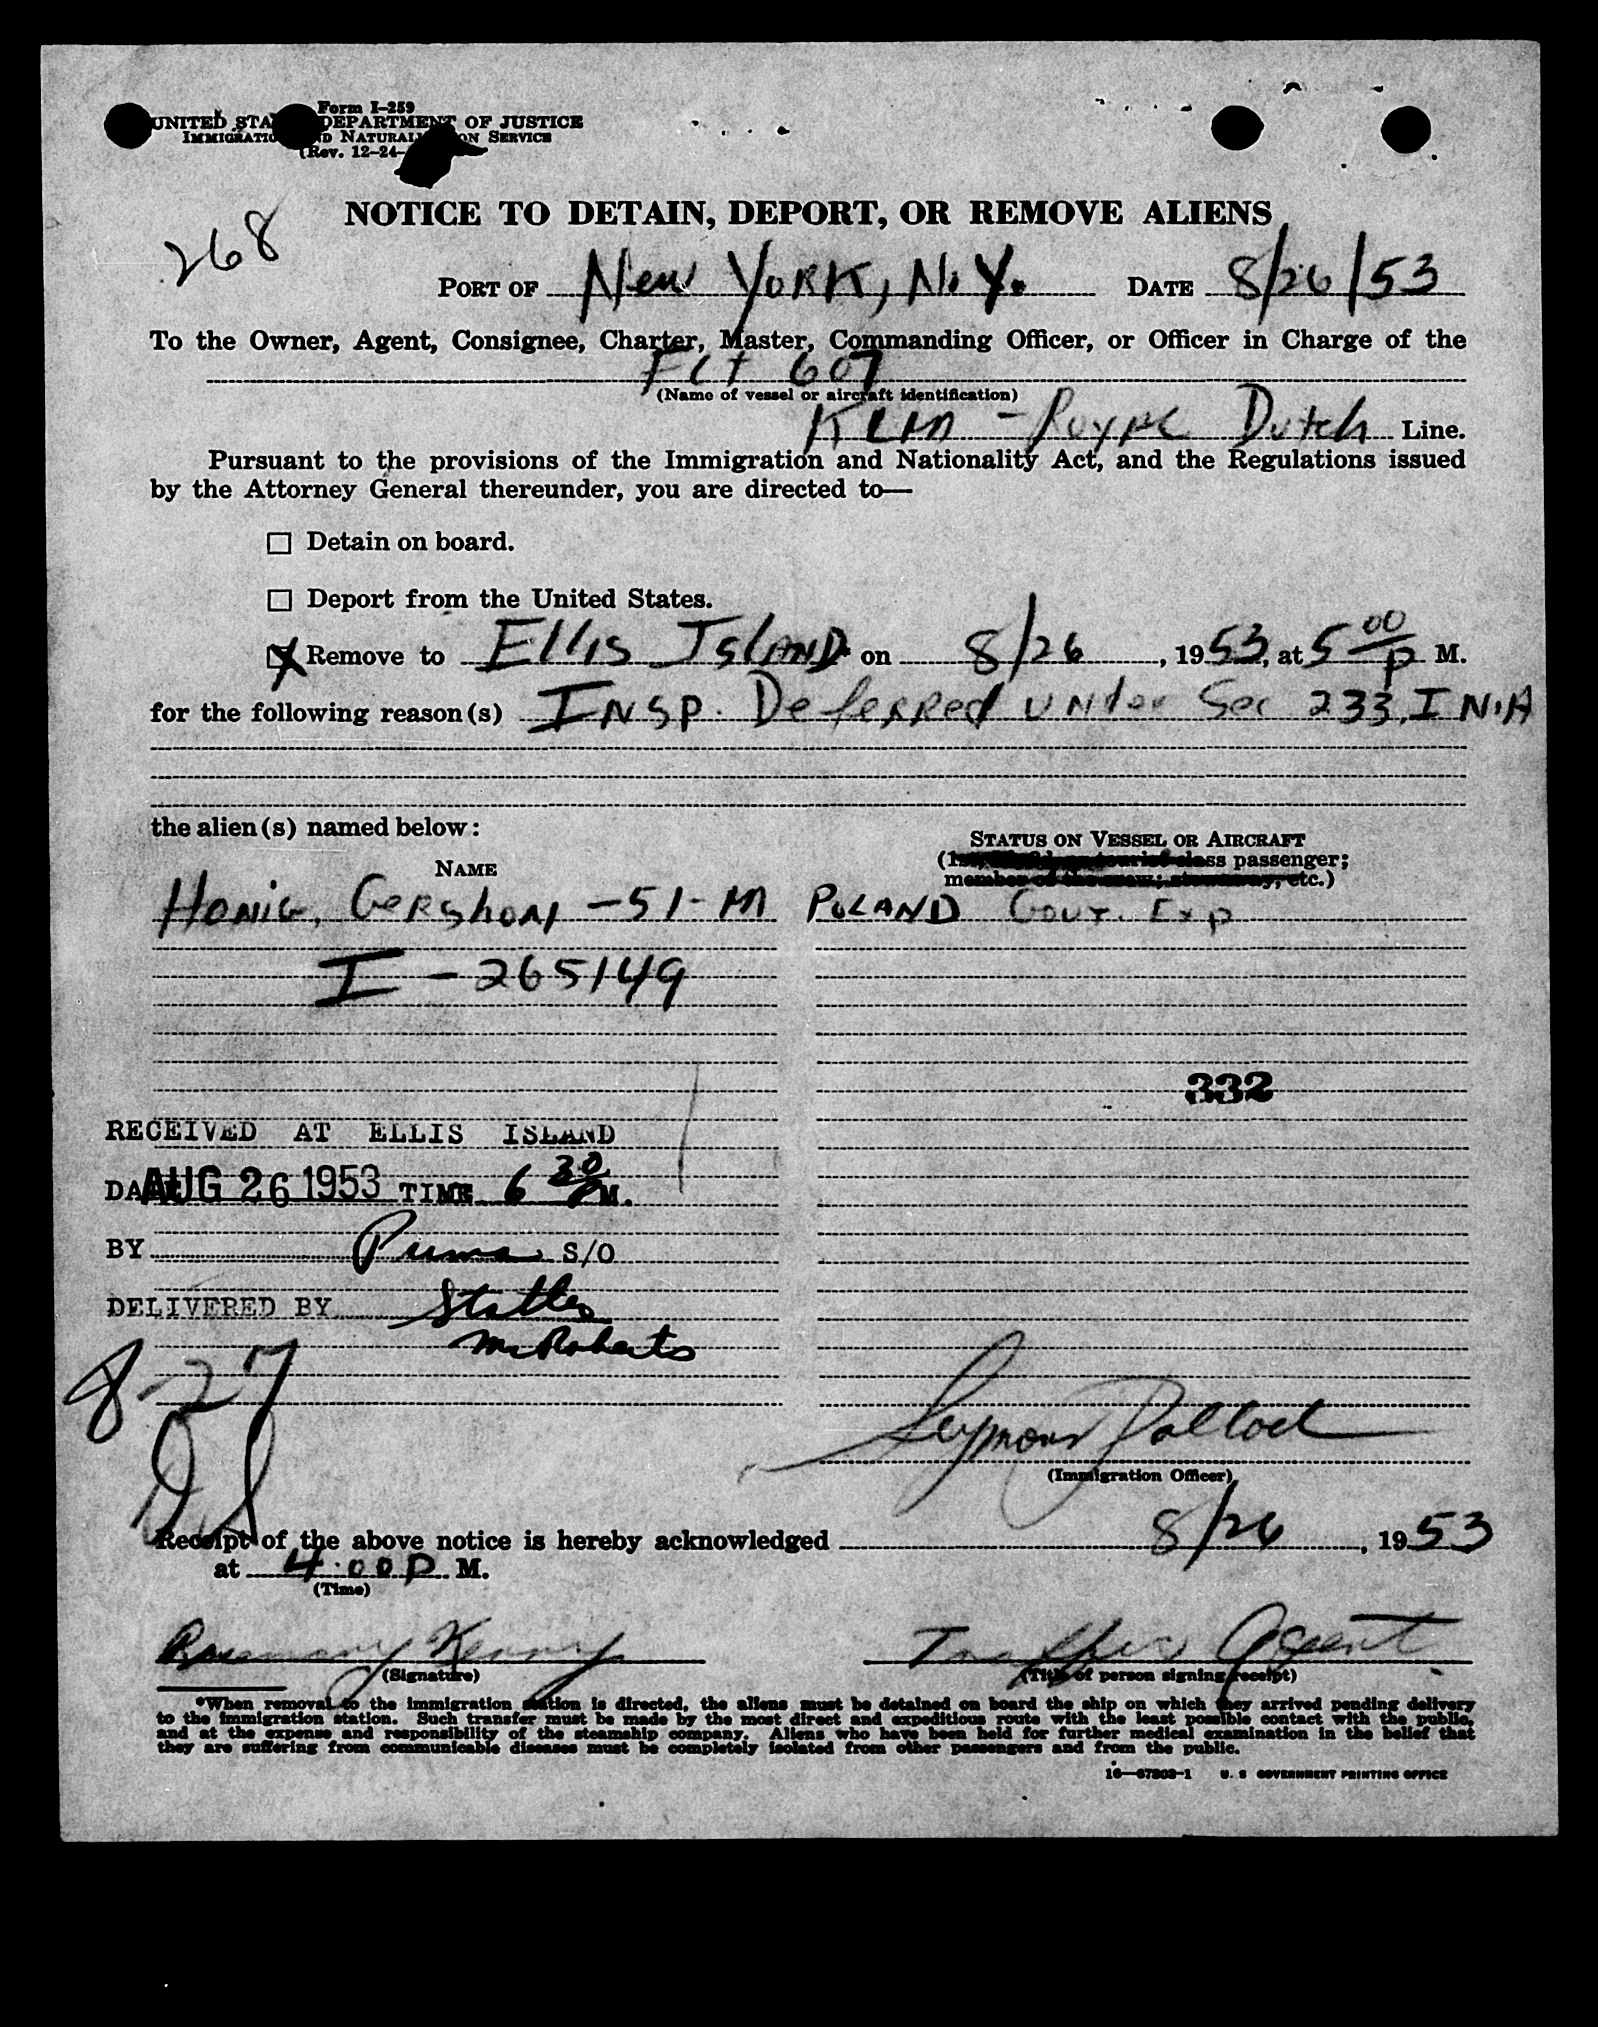 Form I-259
UNITED STA DEPARTMENT OF JUSTICE
IMMIGRATIO ND NATURALI ON SERVICE
(Rev. 12-24-
268
NOTICE TO DETAIN, DEPORT, OR REMOVE ALIENS
PORT OF New York, N.Y. DATE 8/26/53
To the Owner, Agent, Consignee, Charter, Master, Commanding Officer, or Officer in Charge of the
FLT 607
(Name of vessel or aircraft identification)
KLM - Royal Dutch Line.
Pursuant to the provisions of the Immigration and Nationality Act, and the Regulations issued
by the Attorney General thereunder, you are directed to—
Detain on board.
Deport from the United States.
X Remove to Ellis Island on 8/26, 1953, at 5 00 P M.
for the following reason(s) Insp. Deferred under Sec 233, I N.A
the alien(s) named below:
STATUS ON VESSEL OR AIRCRAFT
NAME
passenger;
etc.)
Honig, Gershon - 51 - M POLAND Govt. Exp
I - 265149
332
RECEIVED AT ELLIS ISLAND
DATE AUG 26 1953 TIME 6 30 P M.
BY Puma S/O
DELIVERED BY
McRoberts
8-27
Seymour Pollock
(Immigration Officer)
Receipt of the above notice is hereby acknowledged 8/26, 1953
at 4:00 P M.
(Time)
Rosemary Kenny Traffic Agent
(Signature) (Title of person signing receipt)
*When removal to the immigration station is directed, the aliens must be detained on board the ship on which they arrived pending delivery
to the immigration station. Such transfer must be made by the most direct and expeditious route with the least possible contact with the public,
and at the expense and responsibility of the steamship company. Aliens who have been held for further medical examination in the belief that
they are suffering from communicable diseases must be completely isolated from other passengers and from the public.
16—67303-1 U. S. GOVERNMENT PRINTING OFFICE